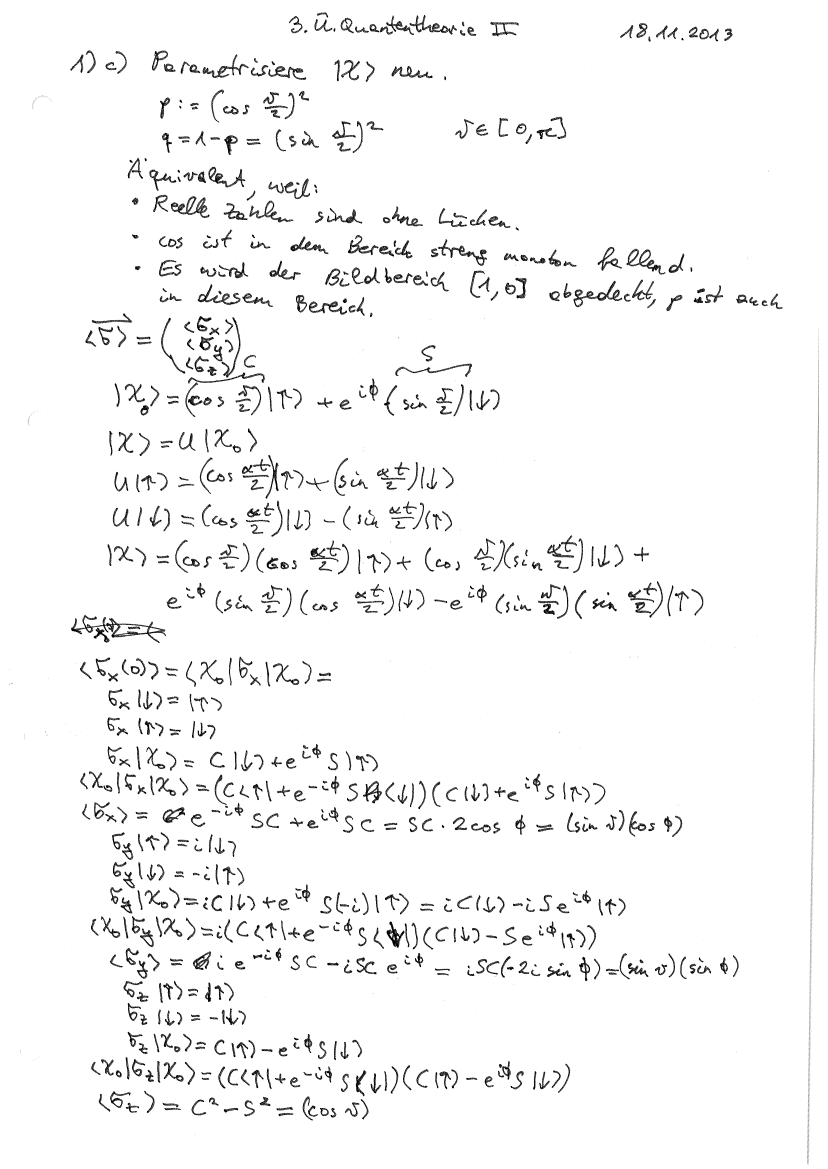 3. Ü. Quantentheorie II 18.11.2013
1) c) Parametrisiere |χ> neu.
p := (cos ϑ/2)²
q = 1-p = (sin ϑ/2)² ϑ ∈ [0,π]
Äquivalent, weil:
• Reelle Zahlen sind ohne Lücken.
• cos ist in dem Bereich streng monoton fallend.
• Es wird der Bildbereich [1,0] abgedeckt, p ist auch
in diesem Bereich.
<σ⃗> = (<σx> <σy> <σz>)
C S
|χ₀> = (cos ϑ/2)|↑> + e^{iϕ} (sin ϑ/2)|↓>
|χ> = U|χ₀>
U|↑> = (cos αt/2)|↑> + (sin αt/2)|↓>
U|↓> = (cos αt/2)|↓> - (sin αt/2)|↑>
|χ> = (cos ϑ/2)(cos αt/2)|↑> + (cos ϑ/2)(sin αt/2)|↓> +
e^{iϕ} (sin ϑ/2)(cos αt/2)|↓> - e^{iϕ} (sin ϑ/2)(sin αt/2)|↑>
<σx(0)> = <χ₀|σx|χ₀> =
σx|↓> = |↑>
σx|↑> = |↓>
σx|χ₀> = C|↓> + e^{iϕ} S|↑>
<χ₀|σx|χ₀> = (C<↑| + e^{-iϕ} S<↓|)(C|↓> + e^{iϕ} S|↑>)
<σx> = e^{-iϕ} SC + e^{iϕ} SC = SC · 2cos ϕ = (sin ϑ)(cos ϕ)
σy|↑> = i|↓>
σy|↓> = -i|↑>
σy|χ₀> = iC|↓> + e^{iϕ} S(-i)|↑> = iC|↓> - iS e^{iϕ}|↑>
<χ₀|σy|χ₀> = i(C<↑| + e^{-iϕ} S<↓|)(C|↓> - S e^{iϕ}|↑>)
<σy> = i e^{-iϕ} SC - iSC e^{iϕ} = iSC(-2i sin ϕ) = (sin ϑ)(sin ϕ)
σz|↑> = |↑>
σz|↓> = -|↓>
σz|χ₀> = C|↑> - e^{iϕ} S|↓>
<χ₀|σz|χ₀> = (C<↑| + e^{-iϕ} S<↓|)(C|↑> - e^{iϕ} S|↓>)
<σz> = C² - S² = (cos ϑ)